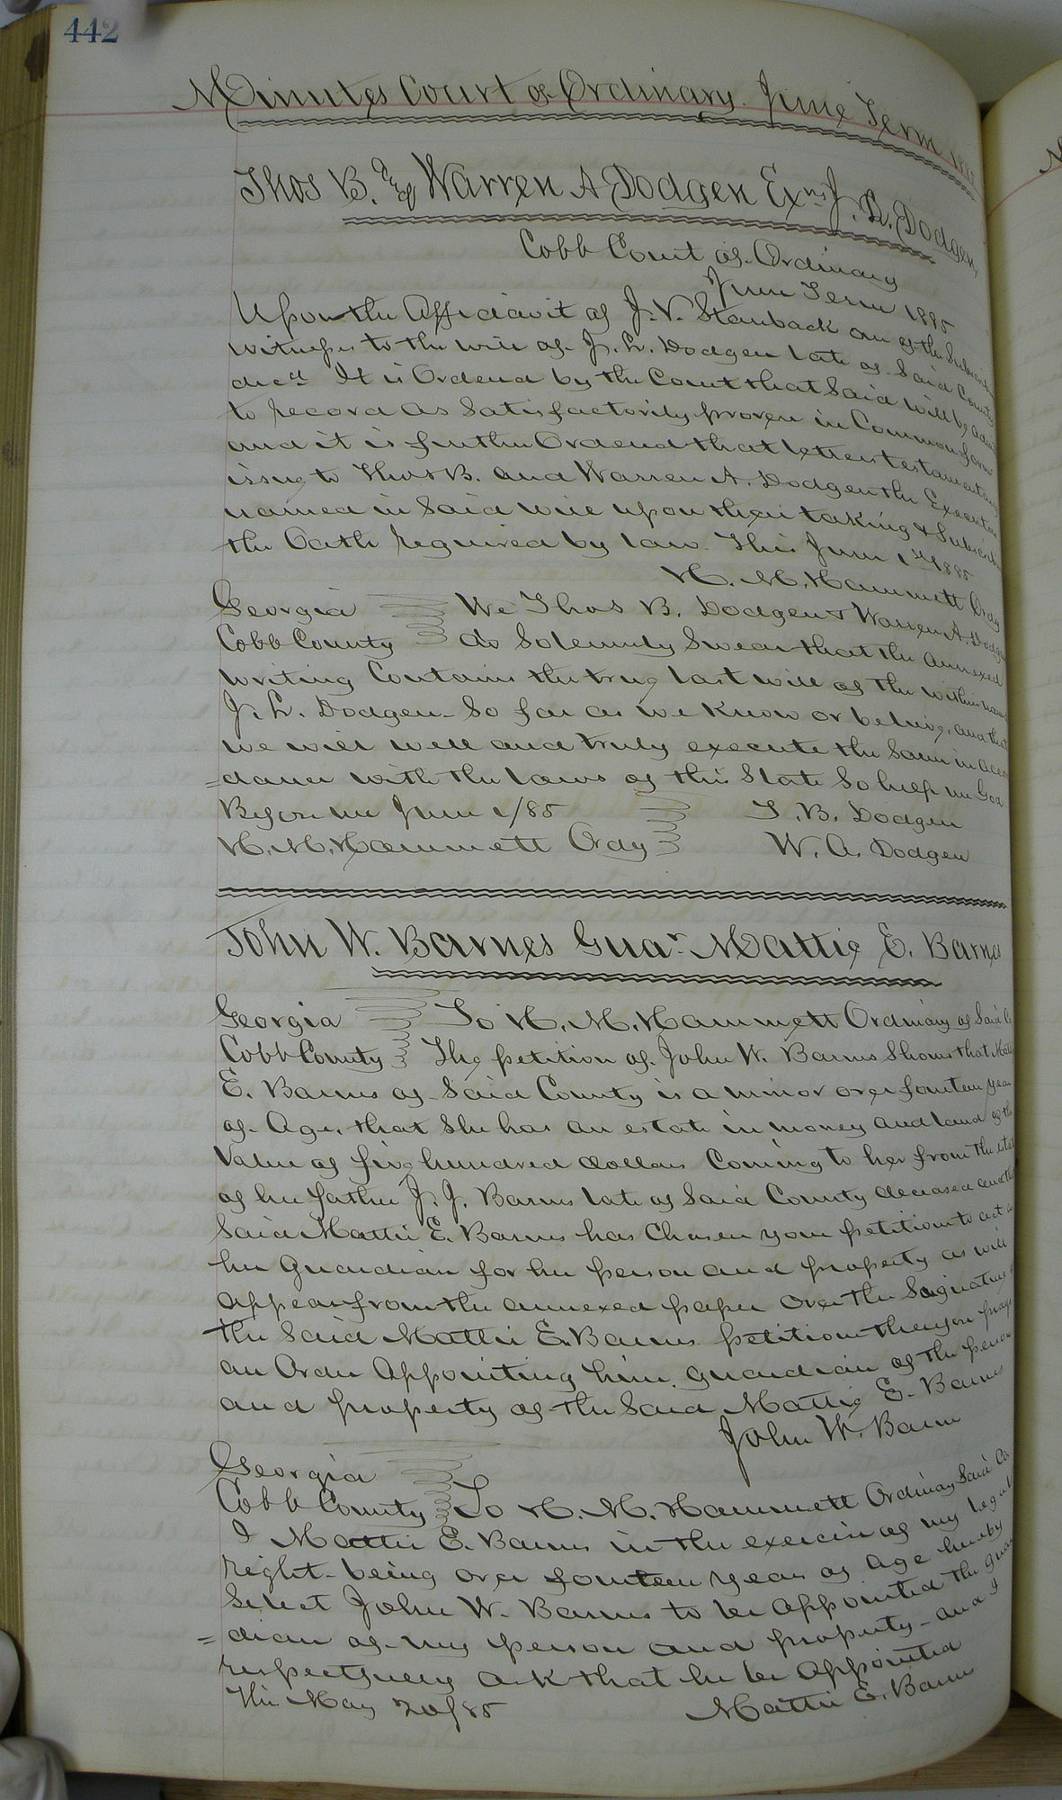 442
Minutes Court of Ordinary June Term
Thos B. and Warren A Dodgen Exrs J. L. Dodgen,
Cobb Court of Ordinary
June Term 1885
Upon the Affidavit of J. V. Stanback on of the
witnesses to the will of J. L. Dodgen late of Said County
decd It is Ordered by the Court that Said will be
to record as Satisfactorily proven in Common form
and it is further Ordered that letters testamentary
issue to Thos B. and Warren A. Dodgen the Executors
named in Said will upon their taking &
the Oath required by law. This June 1st 1885
H. M. Hammett Ordy
Georgia We Thos B. Dodgen & Warren A. Dodgen
Cobb County do Solemnly Swear that the annexed
writing Contains the true last will of the within
J. L. Dodgen So far as we Know or believe, and that
we will well and truly execute the Same in accor
=dance with the laws of this State So help me God
Before me June 1/85 T. B. Dodgen
H. M. Hammett Ordy W. A. Dodgen
John W. Barnes Guar Mattie E. Barnes
Georgia To H. M. Hammett Ordinary of Said Co
Cobb County The petition of John W. Barnes Shows that Mattie
E. Barnes of Said County is a minor over fourteen years
of Age, that She has an estate in money and land of the
Value of five hundred dollars Coming to her from the
of her father J. J. Barnes late of Said County deceased and that
Said Mattie E. Barnes has Chosen your petition to act as
her guardian for her person and property as will
appear from the annexed paper over the Signature of
the Said Mattie E. Barnes petition therefore prays
an Order Appointing him guardian of the person
and property of the Said Mattie E. Barnes
John W. Barnes
Georgia
Cobb County To H. M. Hammett Ordinary Said Co
I Mattie E. Barnes in the exercise of my legal
right being over fourteen years of age hereby
Select John W. Barnes to be appointed the guar
=dian of my person and property and I
respectfully ask that he be appointed
This May 20/85 Mattie E. Barnes